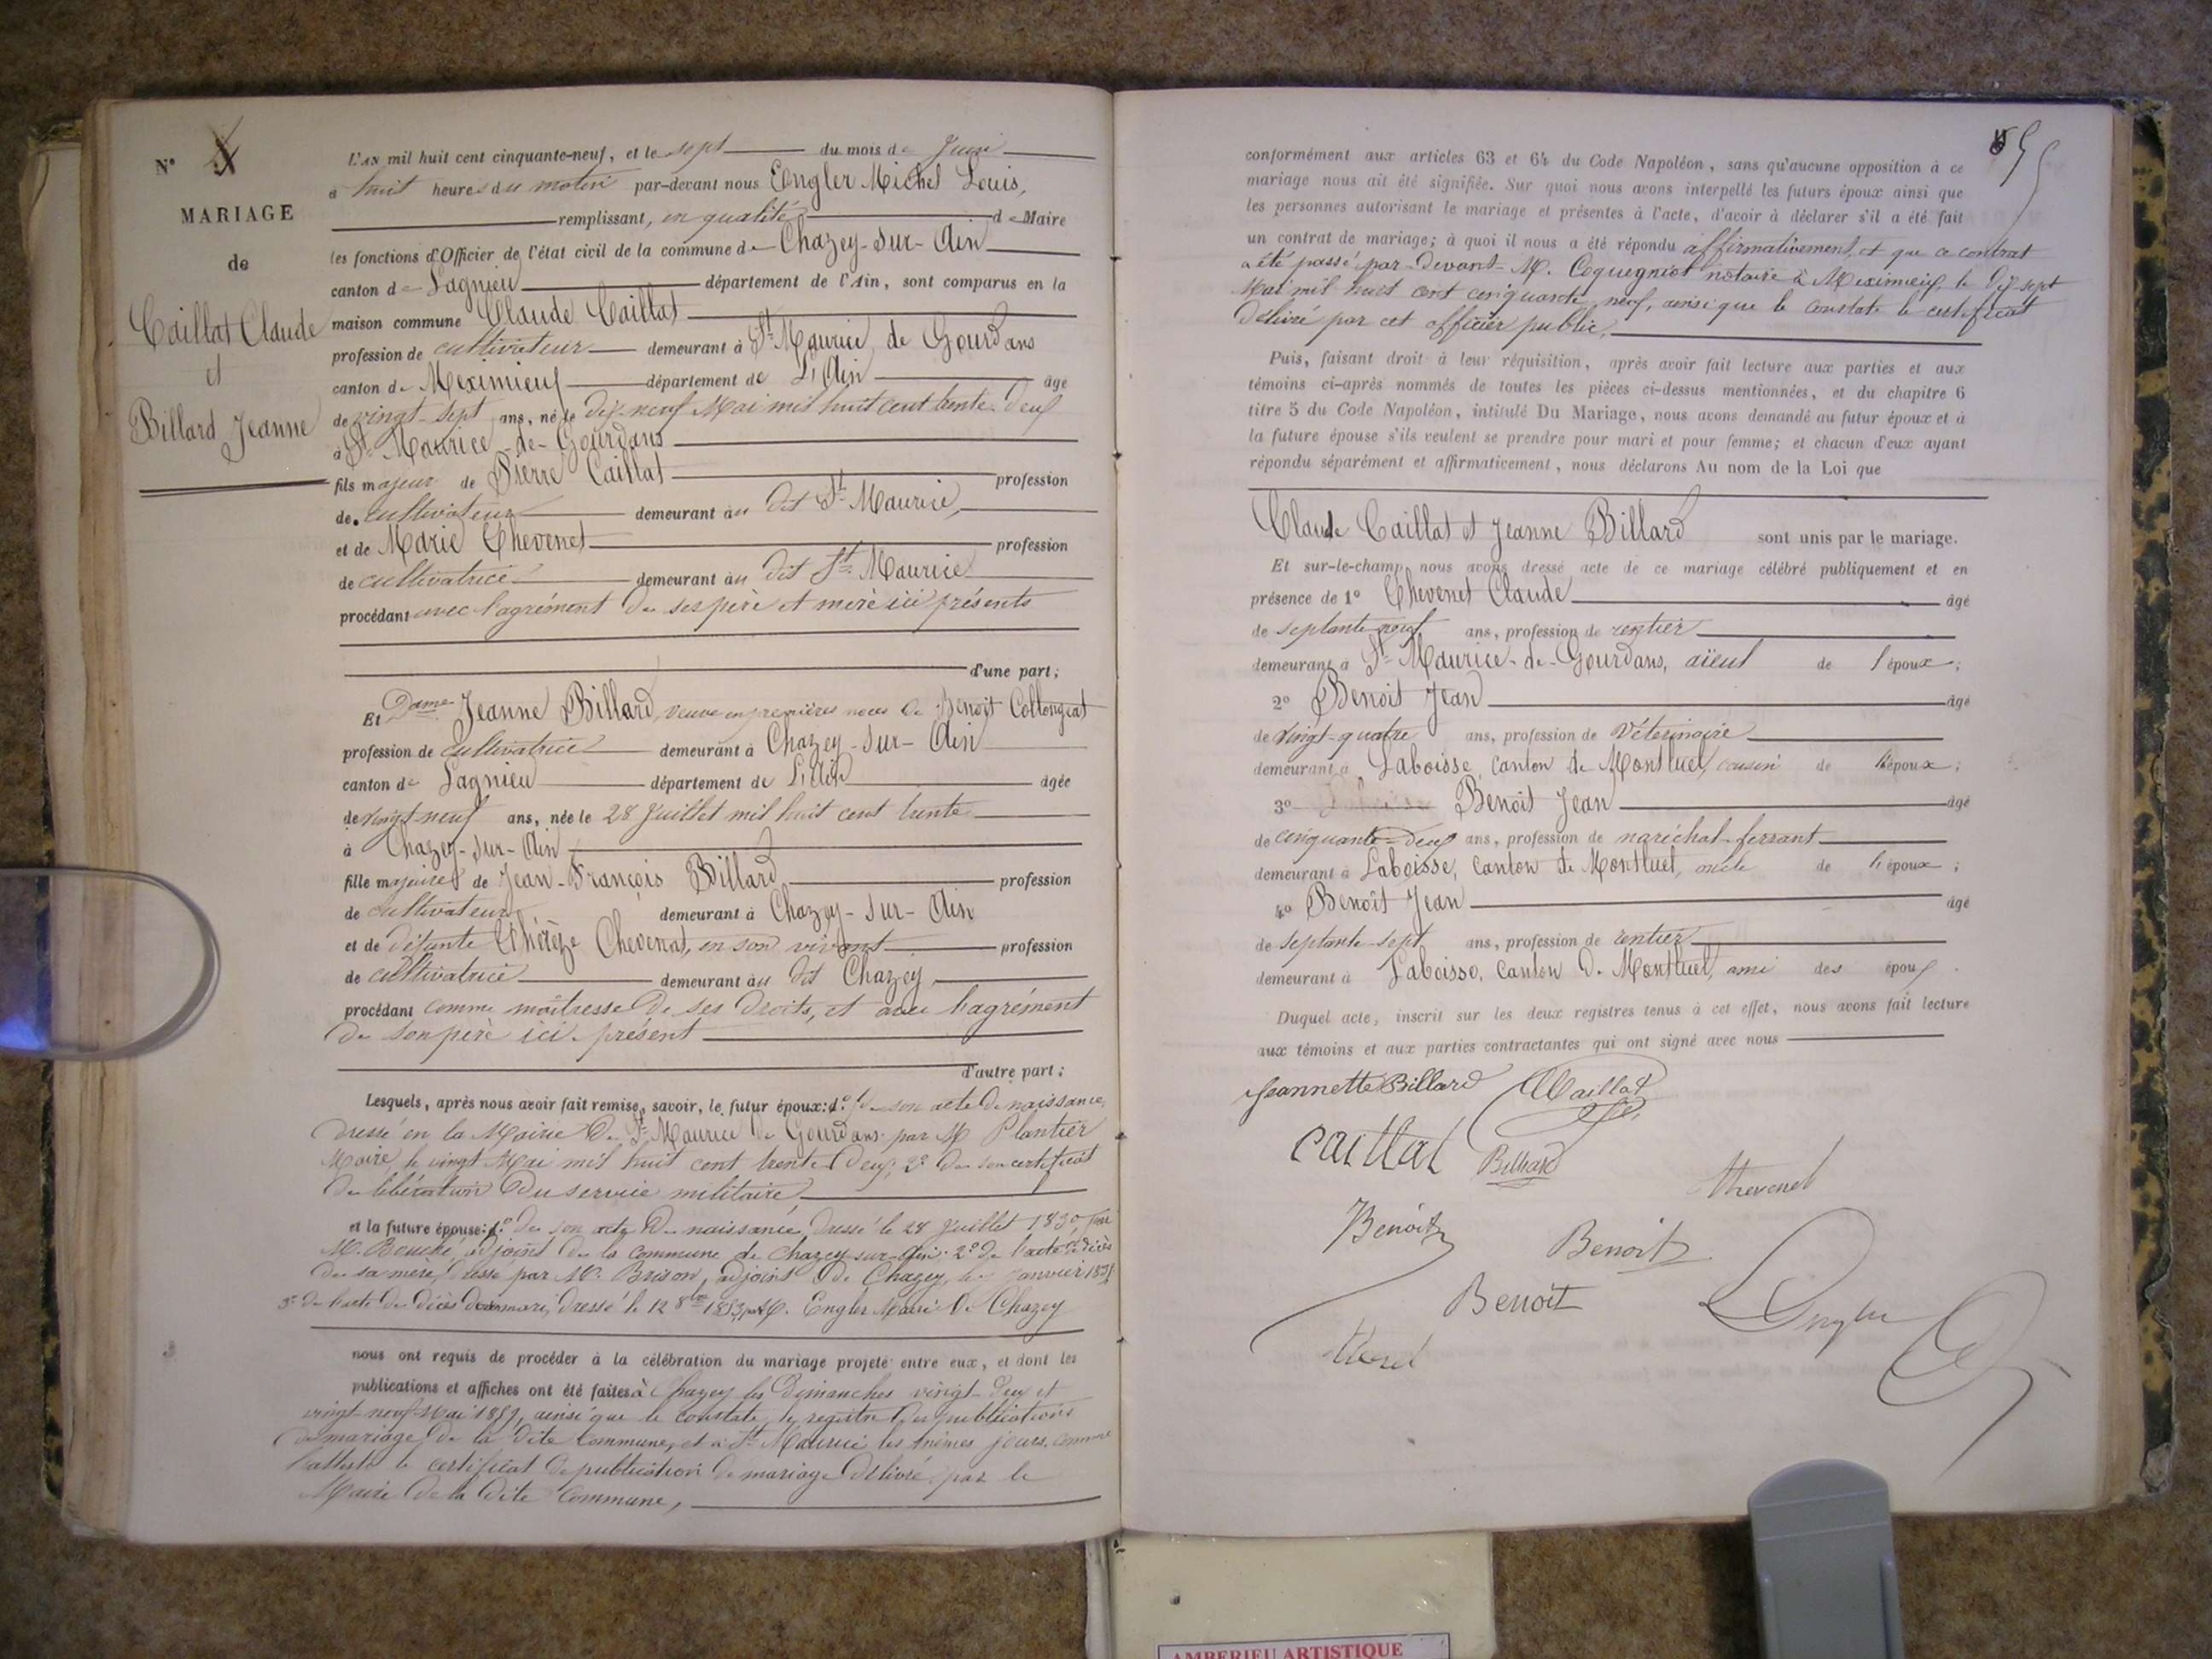 N°
MARIAGE
de
Caillat Claude
et
Billard Jeanne
L'AN mil huit cent cinquante-neuf, et le sept du mois de Juin
à huit heures du matin par-devant nous Engler Michel Louis,
remplissant, en qualité de Maire
les fonctions d'Officier de l'état civil de la commune de Chazey-sur-Ain
canton de Lagnieu département de l'Ain, sont comparus en la
maison commune Claude Caillat
profession de cultivateur demeurant à St Maurice de Gourdans
canton de Meximieux département de L'Ain âgé
de vingt-sept ans, né le dix-neuf Mai mil huit cent trente-deux
à St Maurice-de-Gourdans
fils majeur de Pierre Caillat profession
de cultivateur demeurant au dit St Maurice,
et de Marie Thevenet profession
de cultivatrice demeurant au dit St Maurice
procédant avec l'agrément de ses père et mère ici présents
d'une part;
Et Dame Jeanne Billard, veuve en premières noces de Benoît Collongeat
profession de cultivatrice demeurant à Chazey-sur-Ain
canton de Lagnieu département de L'Ain âgée
de vingt-neuf ans, née le 28 Juillet mil huit cent trente
à Chazey-sur-Ain
fille majeure de Jean-François Billard profession
de cultivateur demeurant à Chazey-sur-Ain
et de défunte Thérèze Chevenat, en son vivant profession
de cultivatrice demeurant au dit Chazey,
procédant comme maîtresse de ses droits, et avec l'agrément
de son père ici présent
d'autre part;
Lesquels, après nous avoir fait remise, savoir, le futur époux: 1° de son acte de naissance,
dressé en la Mairie de St Maurice de Gourdans par M Plantier
Maire, le vingt Mai mil huit cent trente-deux; 2° de son certificat
de libération du service militaire
et la future épouse: 1° de son acte de naissance, dressé le 28 Juillet 1830, par
M. Bouché, adjoint de la commune de Chazey-sur-Ain; 2° de l'acte de décès
de sa mère dressé par M. Brison, adjoint de Chazey, le Janvier
3° de l'acte de décès de son mari, dressé le 12 8bre 1853, par M. Engler Maire de Chazey
nous ont requis de procéder à la célébration du mariage projeté entre eux, et dont les
publications et affiches ont été faites à Chazey les Dimanches vingt-deux et
vingt-neuf Mai 1859, ainsi que le constate le registre des publications
de mariage de la dite Commune, et à St Maurice les mêmes jours, comme
l'atteste le certificat de publication de mariage délivré par le
Maire de la dite Commune,
conformément aux articles 63 et 64 du Code Napoléon, sans qu'aucune opposition à ce
mariage nous ait été signifiée. Sur quoi nous avons interpellé les futurs époux ainsi que
les personnes autorisant le mariage et présentes à l'acte, d'avoir à déclarer s'il a été fait
un contrat de mariage; à quoi il nous a été répondu affirmativement, et que ce contrat
a été passé par-devant M. Coquegniot notaire à Meximieux, le dix-sept
Mai mil huit cent cinquante neuf, ainsi que le constate le certificat
délivré par cet officier public.
Puis, faisant droit à leur réquisition, après avoir fait lecture aux parties et aux
témoins ci-après nommés de toutes les pièces ci-dessus mentionnées, et du chapitre 6
titre 5 du Code Napoléon, intitulé Du Mariage, nous avons demandé au futur époux et à
la future épouse s'ils veulent se prendre pour mari et pour femme; et chacun d'eux ayant
répondu séparément et affirmativement, nous déclarons Au nom de la Loi que
Claude Caillat et Jeanne Billard sont unis par le mariage.
Et sur-le-champ nous avons dressé acte de ce mariage célébré publiquement et en
présence de 1° Thevenet Claude âgé
de septante-neuf ans, profession de rentier
demeurant à St Maurice-de-Gourdans, aïeul de l'époux;
2° Benoit Jean âgé
de vingt-quatre ans, profession de Véterinaire
demeurant à Laboisse, canton de Montluel, cousin de l'époux;
3° Benoit Jean âgé
de cinquante-deux ans, profession de maréchal-ferrant
demeurant à Laboisse, canton de Montluel, oncle de l'époux;
4° Benoît Jean âgé
de septante-sept ans, profession de rentier
demeurant à Laboisse, canton de Montluel, ami des époux.
Duquel acte, inscrit sur les deux registres tenus à cet effet, nous avons fait lecture
aux témoins et aux parties contractantes qui ont signé avec nous
Jeannette Billard CCaillat
Caillat Billard
thevenet
Benoit Benoit
Benoit Engler
AMBERIEU ARTISTIQUE